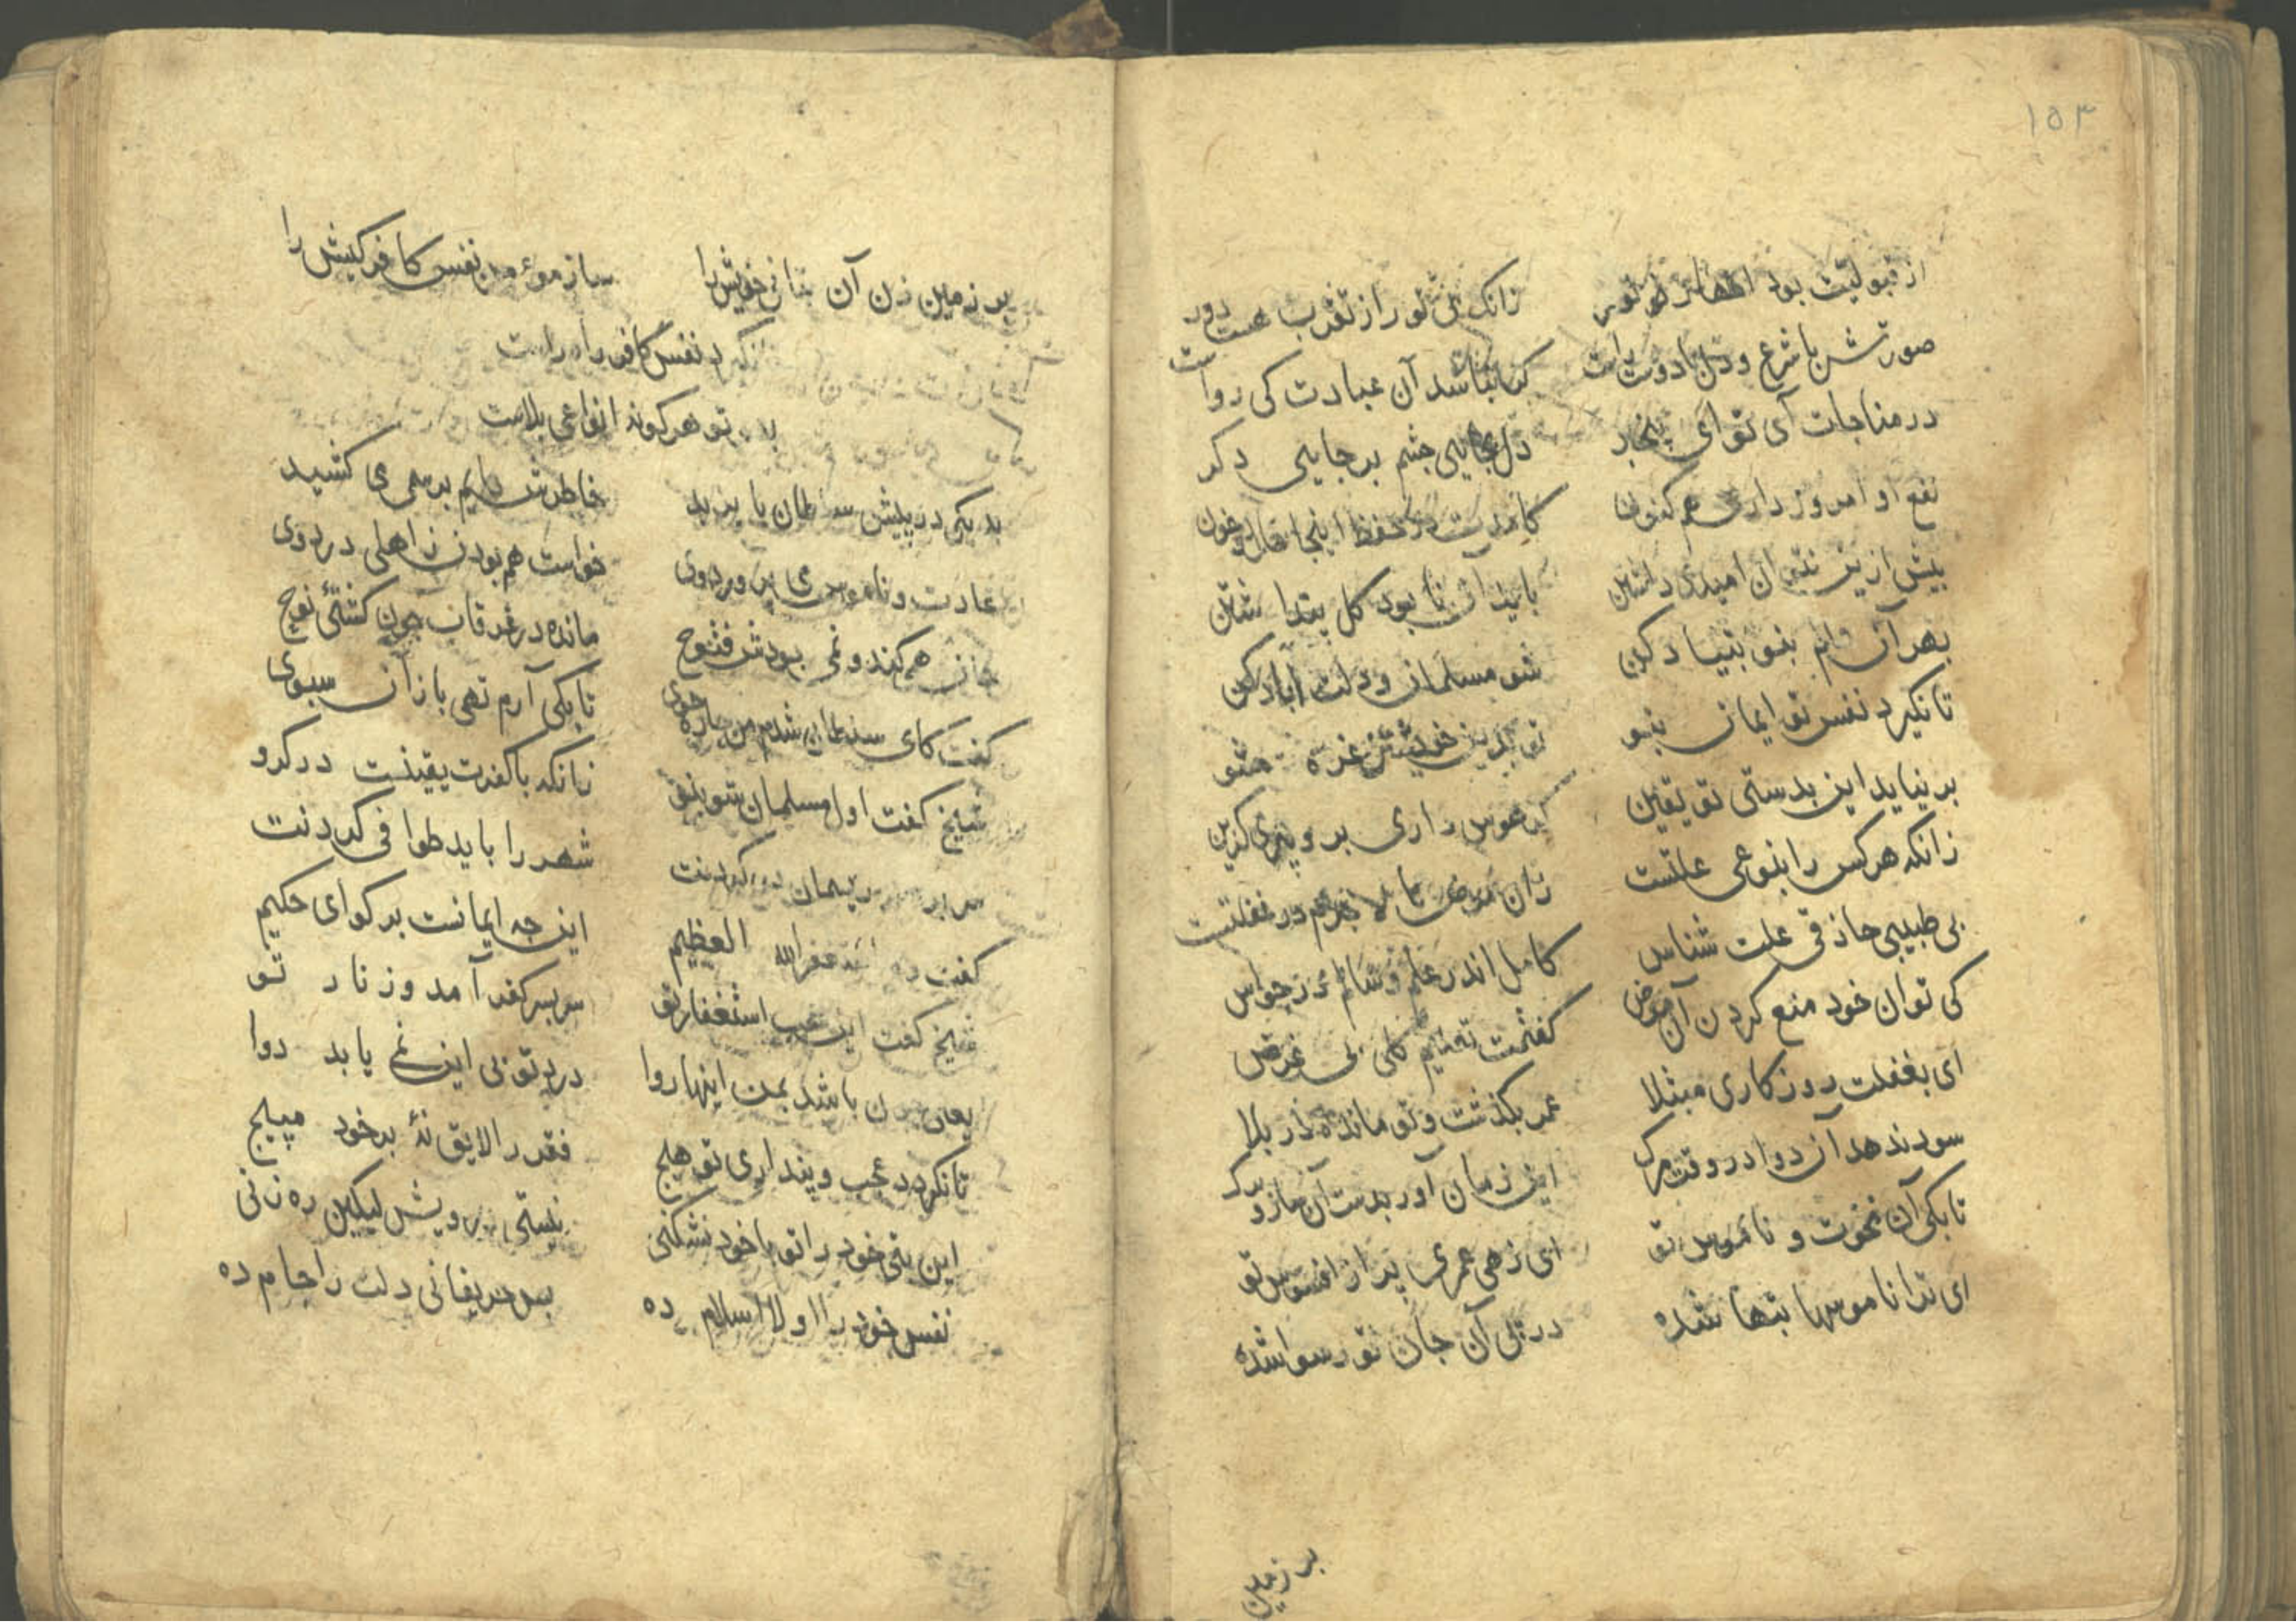 ۱۵۳
از قبولیت بود زانک بی نور از تقرب هست دور
صورتش با شرع و دل با دوست راست کی باشد آن عبادت کی رواست
در مناجات آی تو ای بیخبر دل بجایی چشم بر جایی دکر
نفع او امروز داری هم کنون کاندرت در حفظ اینجا
بیش ازین نتوان امیدی داشتن باید آن نابود کل پنداشتن
بهر آن دایم بنو بنیاد کن شو مسلمان و دلت آباد کن
تا نکیرد نفس تو ایمان بنو تو بدین خویشتن غره مشو
بر نیاید این بدستی تو یقین کر هوس داری برو پیری کزین
زانکه هرکس را بنوعی علتست زان مرض تا لاجرم در غفلتست
بی طبیبی حاذقی علت شناس کامل اندر علم و سالم در حواس
کی توان خود منع کردن آن مرض کفتمت تعلیم کلی بی غرض
ای بغفلت روزکاری مبتلا عمر بکذشت و تو مانده در بلا
سود ندهد آن دوا در وقت مرک این زمان آور بدست آن ساز و برک
تا بکی آن نخوت و ناموس تو ای زهی عمری پر از افسوس تو
ای ترا ناموسها بتها شده در پی آن جان تو رسوا شده
بر زمین
بر زمین زن آن خویش را ساز موءمن نفس کافر کیش را
نفس کافر راه راست
تو هرکونه انواعی بلاست
بد یکی در پیش سلطان بایزید خاطرش دایم برسمی می کشید
عادت و ناموس می پروردوی خواست هم بودن ز اهلی دردوی
جان همی کند و نمی بودش فتوح مانده در غرقاب چون کشتئ نوح
کفت کای سلطان شدم من چاره جوی تا بکی آرم تهی باز آن سبوی
شیخ کفت اول مسلمان شو بنو زانکه با کفرت یقینست در کرو
سر بسر ریسمان در کردنت شهر را باید طوافی کردنت
کفت استغفرالله العظیم این چه ایمانست بر کو ای حکیم
شیخ کفت این عجب استغفار تو سر بسر کفر آمد و زنار تو
باشد بمن اینها روا درد تو بی این نمی یابد دوا
تا نکردد عجب و پنداری تو هیچ فقر را لایق نۀ بر خود مپیچ
این بتی خود را تو با خود نشکنی نیستی درویش لیکن ره زنی
نفس خود را اولا اسلام ده پس حریفانی دلت را جام ده